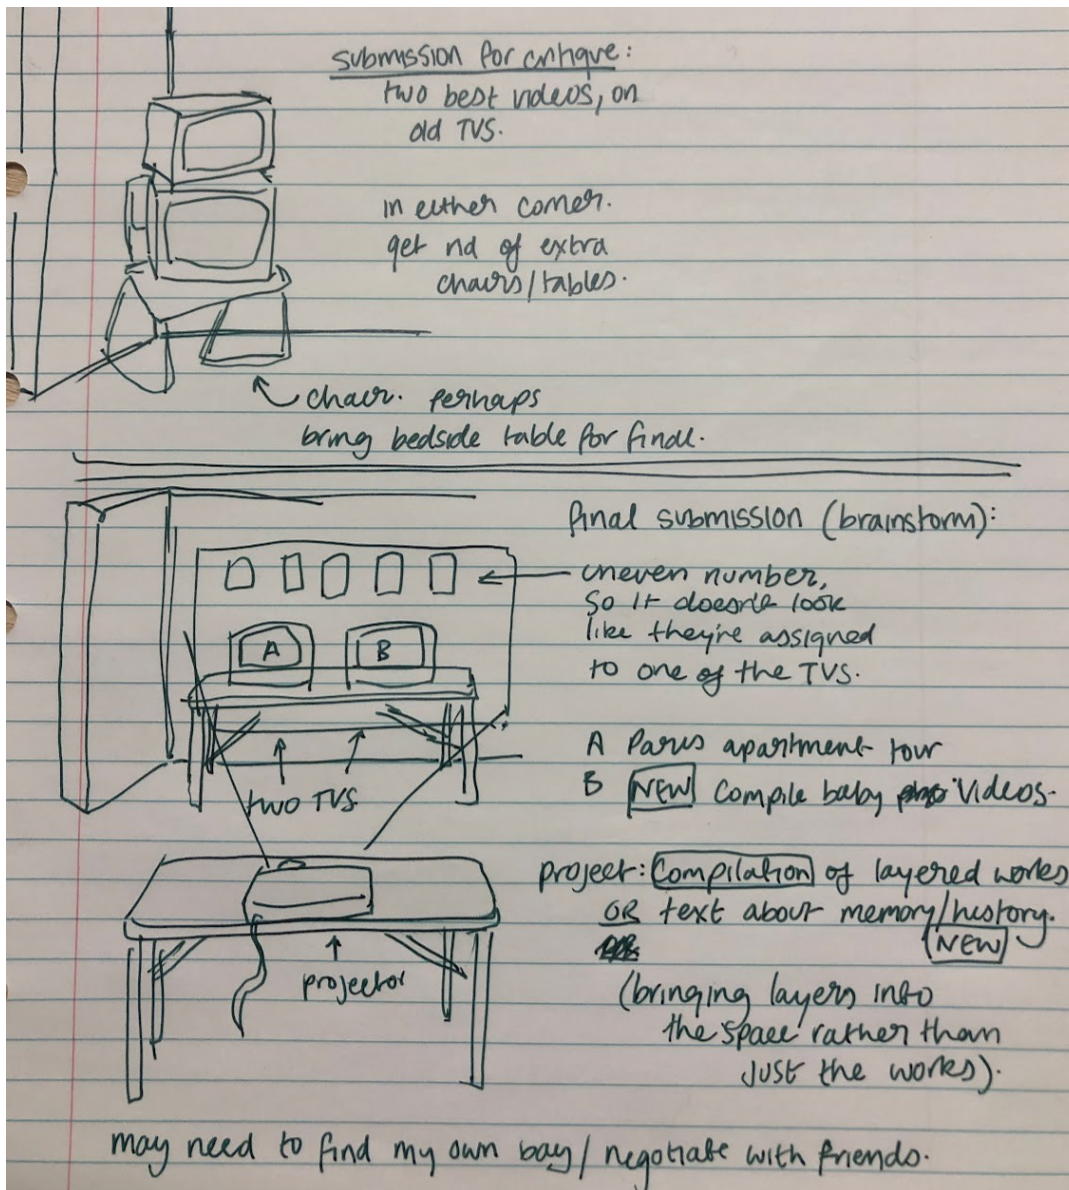 submission for critique:
two best videos, on
old TVS.
in either corner.
get rid of extra
chairs/tables.
chair. perhaps
bring bedside table for final.
final submission (brainstorm):
uneven number,
so it doesn't look
like they're assigned
to one of the TVS.
A
B
A Paris apartment tour
B NEW compile baby videos.
two TVS
project: compilation of layered works
OR text about memory/history.
NEW
projector
(bringing layers into
the space rather than
just the works).
may need to find my own bay/negotiate with friends.